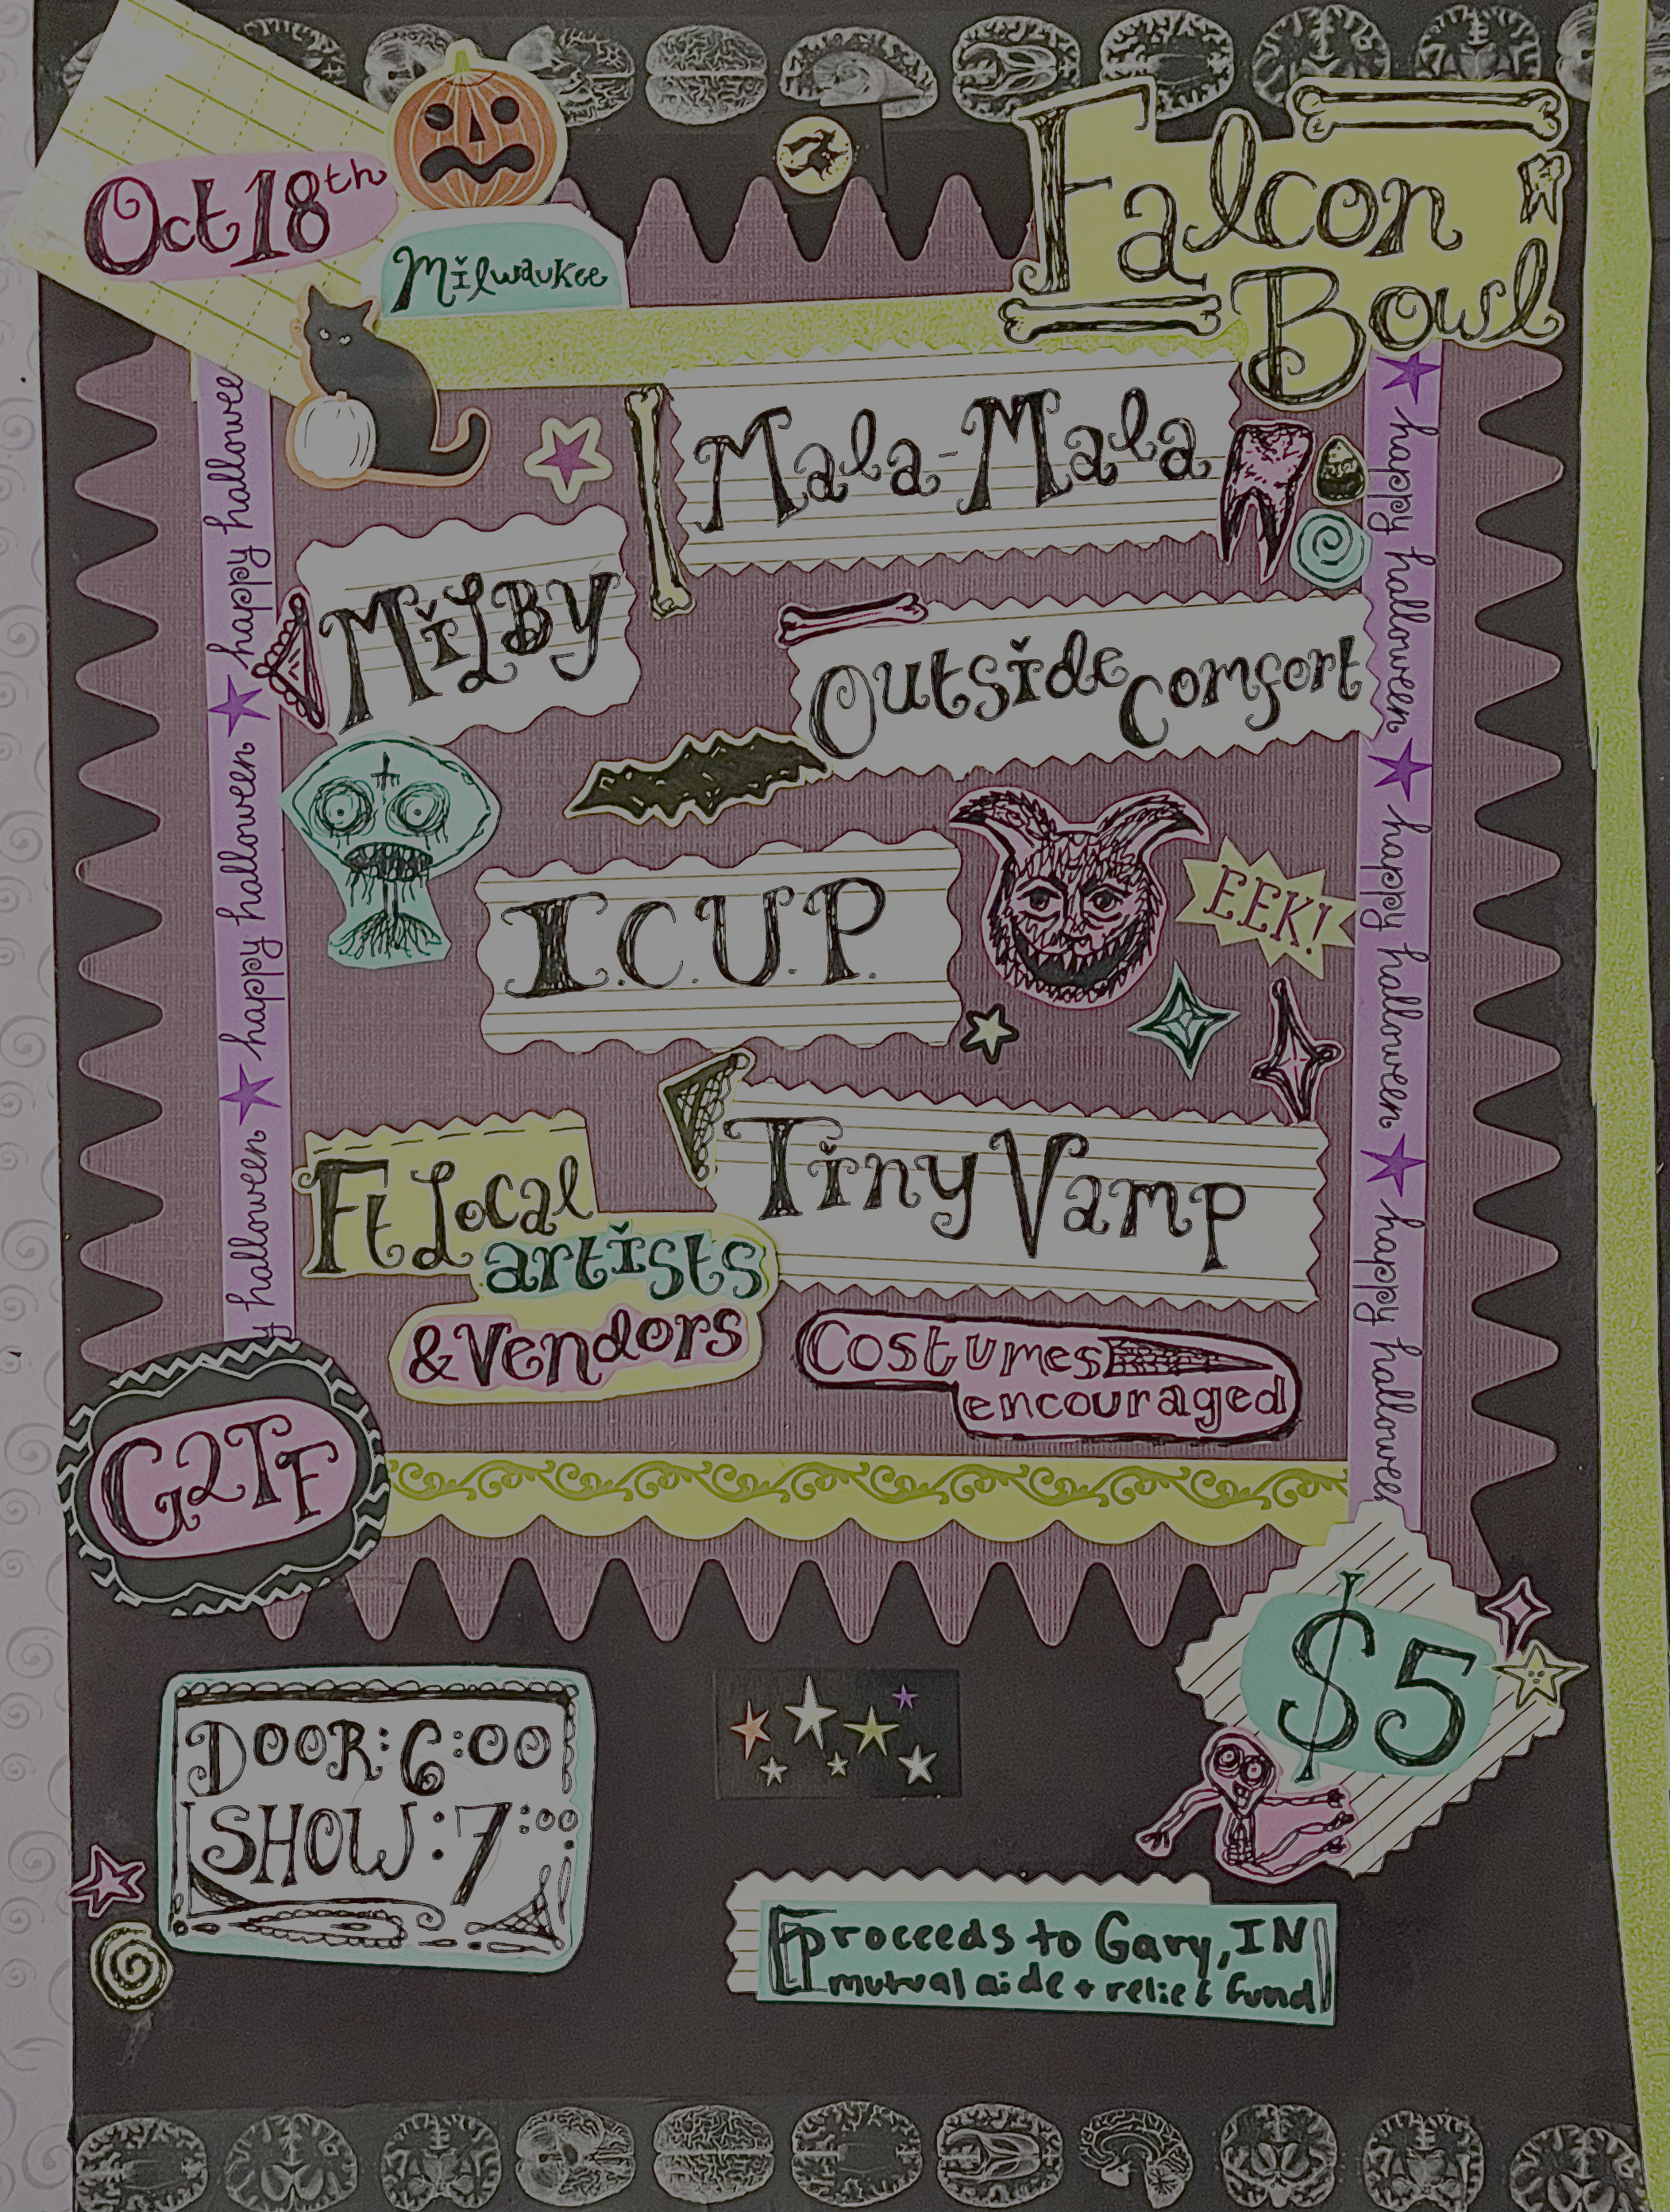 Oct 18th
Milwaukee
Falcon
Bowl
Mala-Mala
MiLBY
Outside Comfort
I.C.U.P.
EEK!
Tiny Vamp
Ft Local
artists
& Vendors
Costumes
encouraged
G2TF
$5
DOOR: 6:00
SHOW: 7:00
Proceeds to Gary, IN
mutual aide + relief fund
happy hallowee
happy halloween
happy halloween
happy halloween
happy halloween
happy halloween
happy hallowee